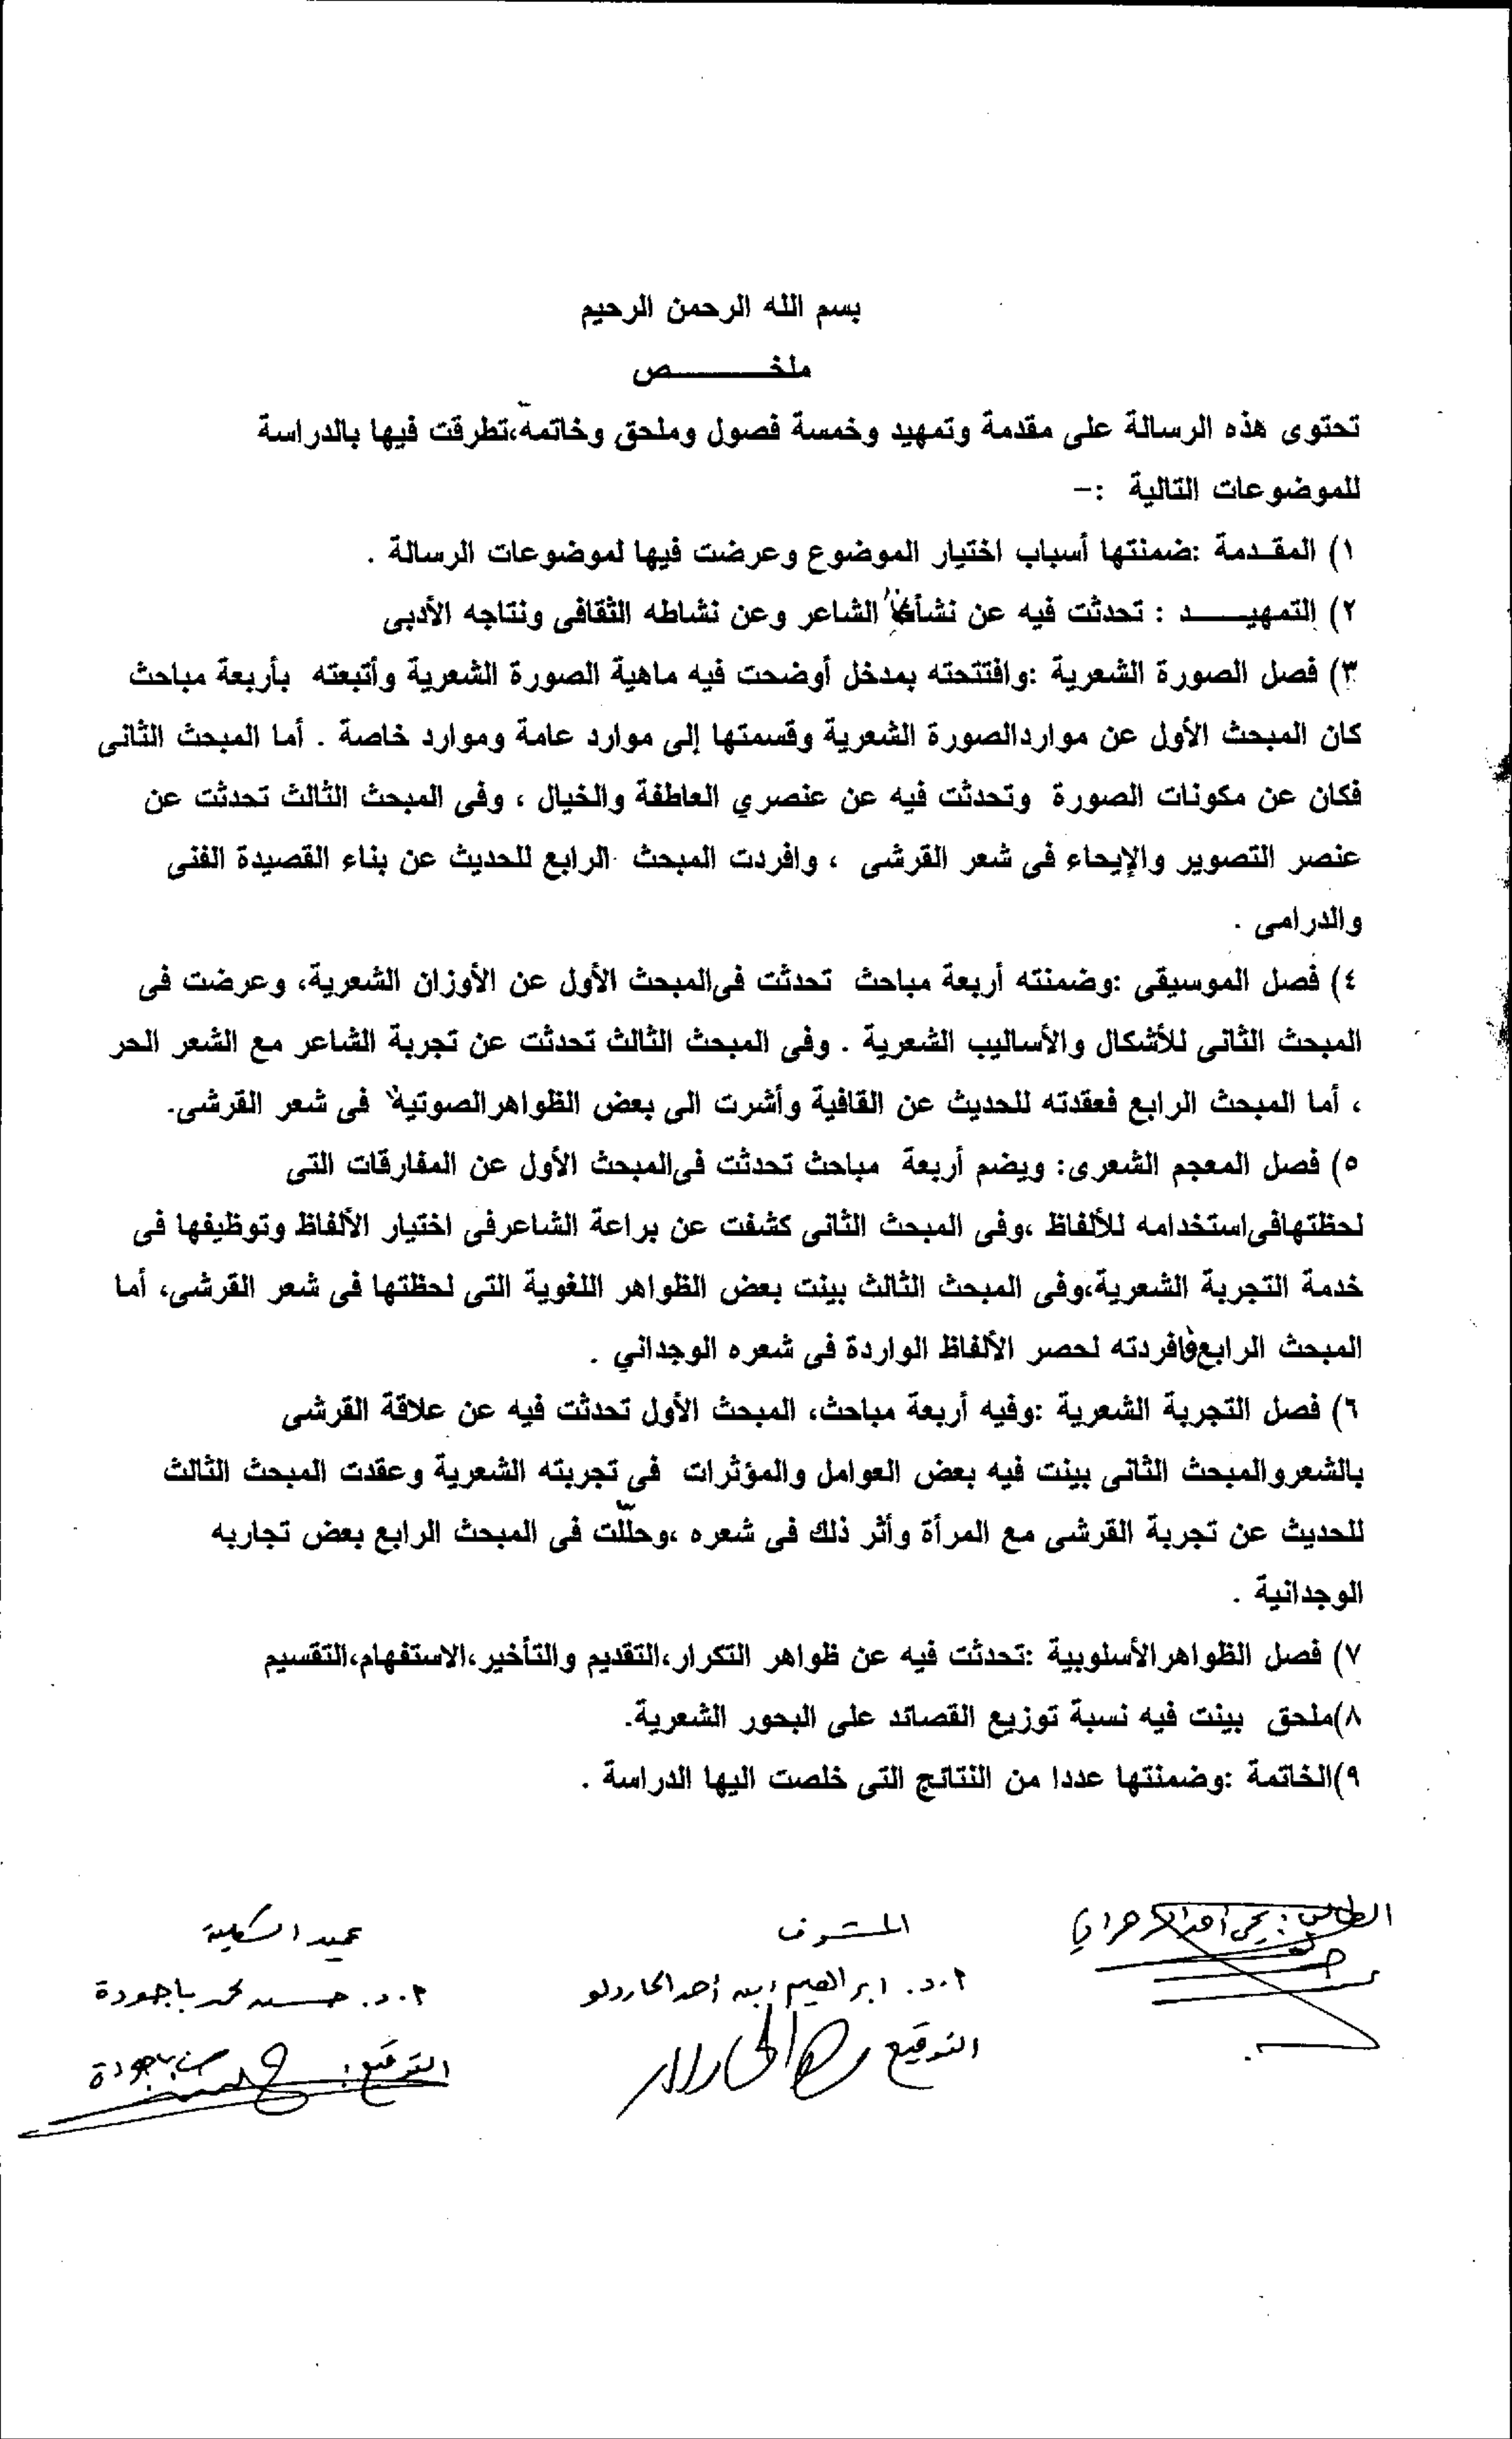 بسم الله الرحمن الرحيم
ملخـــــــص
تحتوى هذه الرسالة على مقدمة وتمهيد وخمسة فصول وملحق وخاتمة،تطرقت فيها بالدراسة
للموضوعات التالية :-
١) المقـدمة :ضمنتها أسباب اختيار الموضوع وعرضت فيها لموضوعات الرسالة .
٢) التمهيـــــد : تحدثت فيه عن نشأة الشاعر وعن نشاطه الثقافى ونتاجه الأدبى
٣) فصل الصورة الشعرية :وافتتحته بمدخل أوضحت فيه ماهية الصورة الشعرية وأتبعته بأربعة مباحث
كان المبحث الأول عن مواردالصورة الشعرية وقسمتها إلى موارد عامة وموارد خاصة . أما المبحث الثانى
فكان عن مكونات الصورة وتحدثت فيه عن عنصري العاطفة والخيال ، وفى المبحث الثالث تحدثت عن
عنصر التصوير والإيحاء فى شعر القرشى ، وافردت المبحث الرابع للحديث عن بناء القصيدة الفنى
والدرامى .
٤) فصل الموسيقى :وضمنته أربعة مباحث تحدثت فىالمبحث الأول عن الأوزان الشعرية، وعرضت فى
المبحث الثانى للأشكال والأساليب الشعرية . وفى المبحث الثالث تحدثت عن تجربة الشاعر مع الشعر الحر
، أما المبحث الرابع فعقدته للحديث عن القافية وأشرت الى بعض الظواهرالصوتية فى شعر القرشى.
٥) فصل المعجم الشعرى: ويضم أربعة مباحث تحدثت فىالمبحث الأول عن المفارقات التى
لحظتهافىاستخدامه للألفاظ ،وفى المبحث الثانى كشفت عن براعة الشاعرفى اختيار الألفاظ وتوظيفها فى
خدمة التجربة الشعرية،وفى المبحث الثالث بينت بعض الظواهر اللغوية التى لحظتها فى شعر القرشى، أما
المبحث الرابع فافردته لحصر الألفاظ الواردة فى شعره الوجداني .
٦) فصل التجربة الشعرية :وفيه أربعة مباحث، المبحث الأول تحدثت فيه عن علاقة القرشى
بالشعروالمبحث الثانى بينت فيه بعض العوامل والمؤثرات فى تجربته الشعرية وعقدت المبحث الثالث
للحديث عن تجربة القرشى مع المرأة وأثر ذلك فى شعره ،وحلّلت فى المبحث الرابع بعض تجاربه
الوجدانية .
٧) فصل الظواهرالأسلوبية :تحدثت فيه عن ظواهر التكرار،التقديم والتأخير،الاستفهام،التقسيم
٨)ملحق بينت فيه نسبة توزيع القصائد على البحور الشعرية.
٩)الخاتمة :وضمنتها عددا من النتائج التى خلصت اليها الدراسة .
الطالب : يحي أحمد الزهراني
المشرف
عميد الكلية
أ.د. ابراهيم أحمد الحاردلو
أ.د. حسن محمد باجودة
التوقيع
التوقيع: حسن باجودة